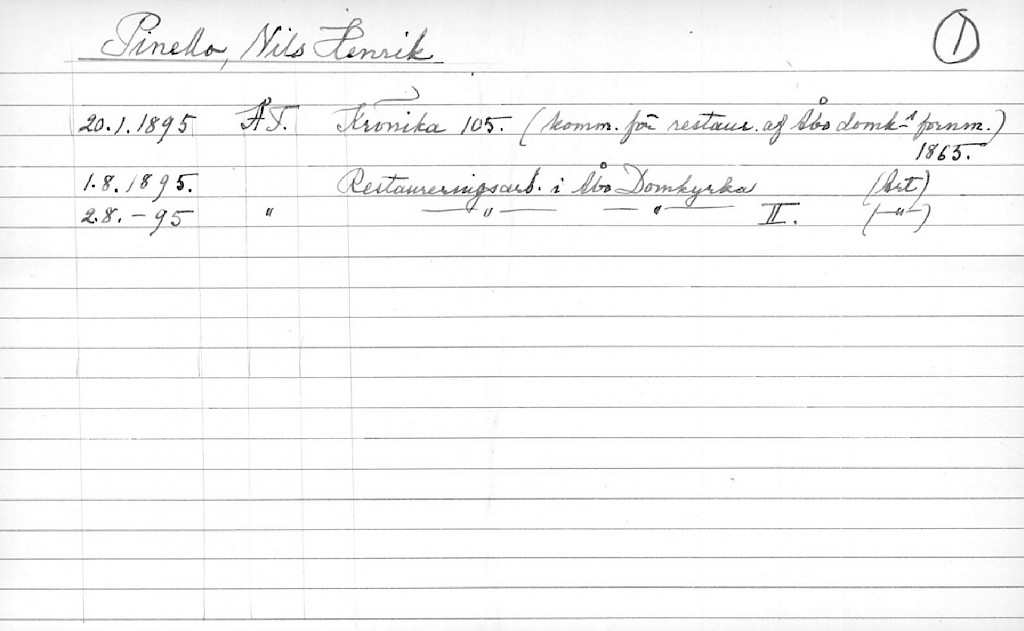 Pinello, Nils Henrik 1
20.1.1895 ÅT. Krönika 105. (komm. för restaur. af Åbo domk-s fornm.)
1865.
1.8.1895. Restaureringsarb. i Åbo Domkyrka (Art)
2.8.-95 " —"— —"— II. (—"—)